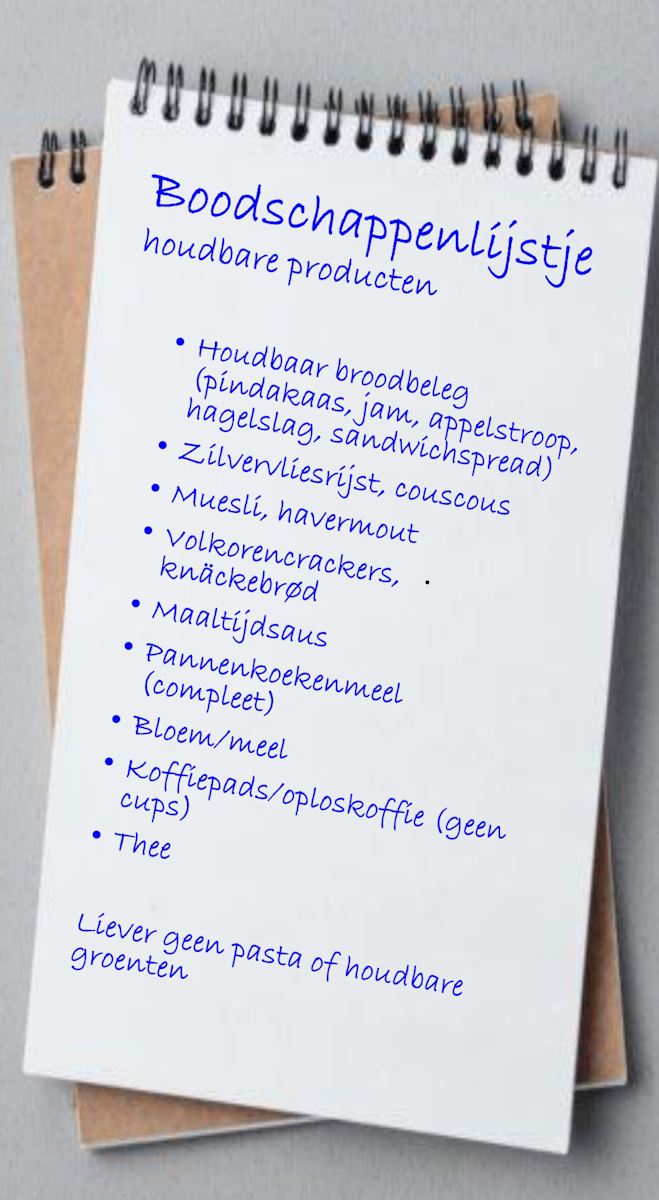 Boodschappenlijstje
houdbare producten
• Houdbaar broodbeleg
(pindakaas, jam, appelstroop,
hagelslag, sandwichspread)
• Zilvervliesrijst, couscous
• Muesli, havermout
• Volkorencrackers, .
knäckebrød
• Maaltijdsaus
• Pannenkoekenmeel
(compleet)
• Bloem/meel
• Koffiepads/oploskoffie (geen
cups)
• Thee
Liever geen pasta of houdbare
groenten